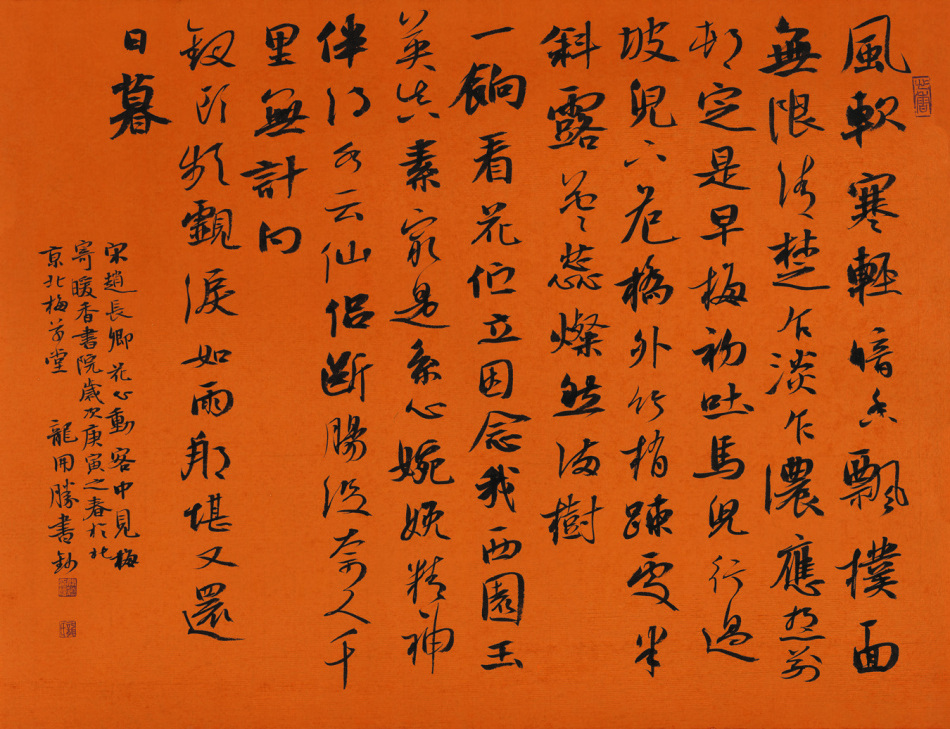 風軟寒輕暗香飄撲面
無限清楚乍淡乍濃應想前
村定是早梅初吐馬兒行過
坡兒下危橋外竹梢疎處半
斜露花〻蕊〻燦然滿樹
一餉看花伫立因念我西園玉
英真素最是系心婉娩精神
伴得水云仙侣斷腸沒奈人千
里無計向
釵頭頻覷淚如雨那堪又還
日暮
宋趙長卿花心動客中見梅
寄暖香書院歲次庚寅之春於北
京北梅草堂 龍開勝書鈔